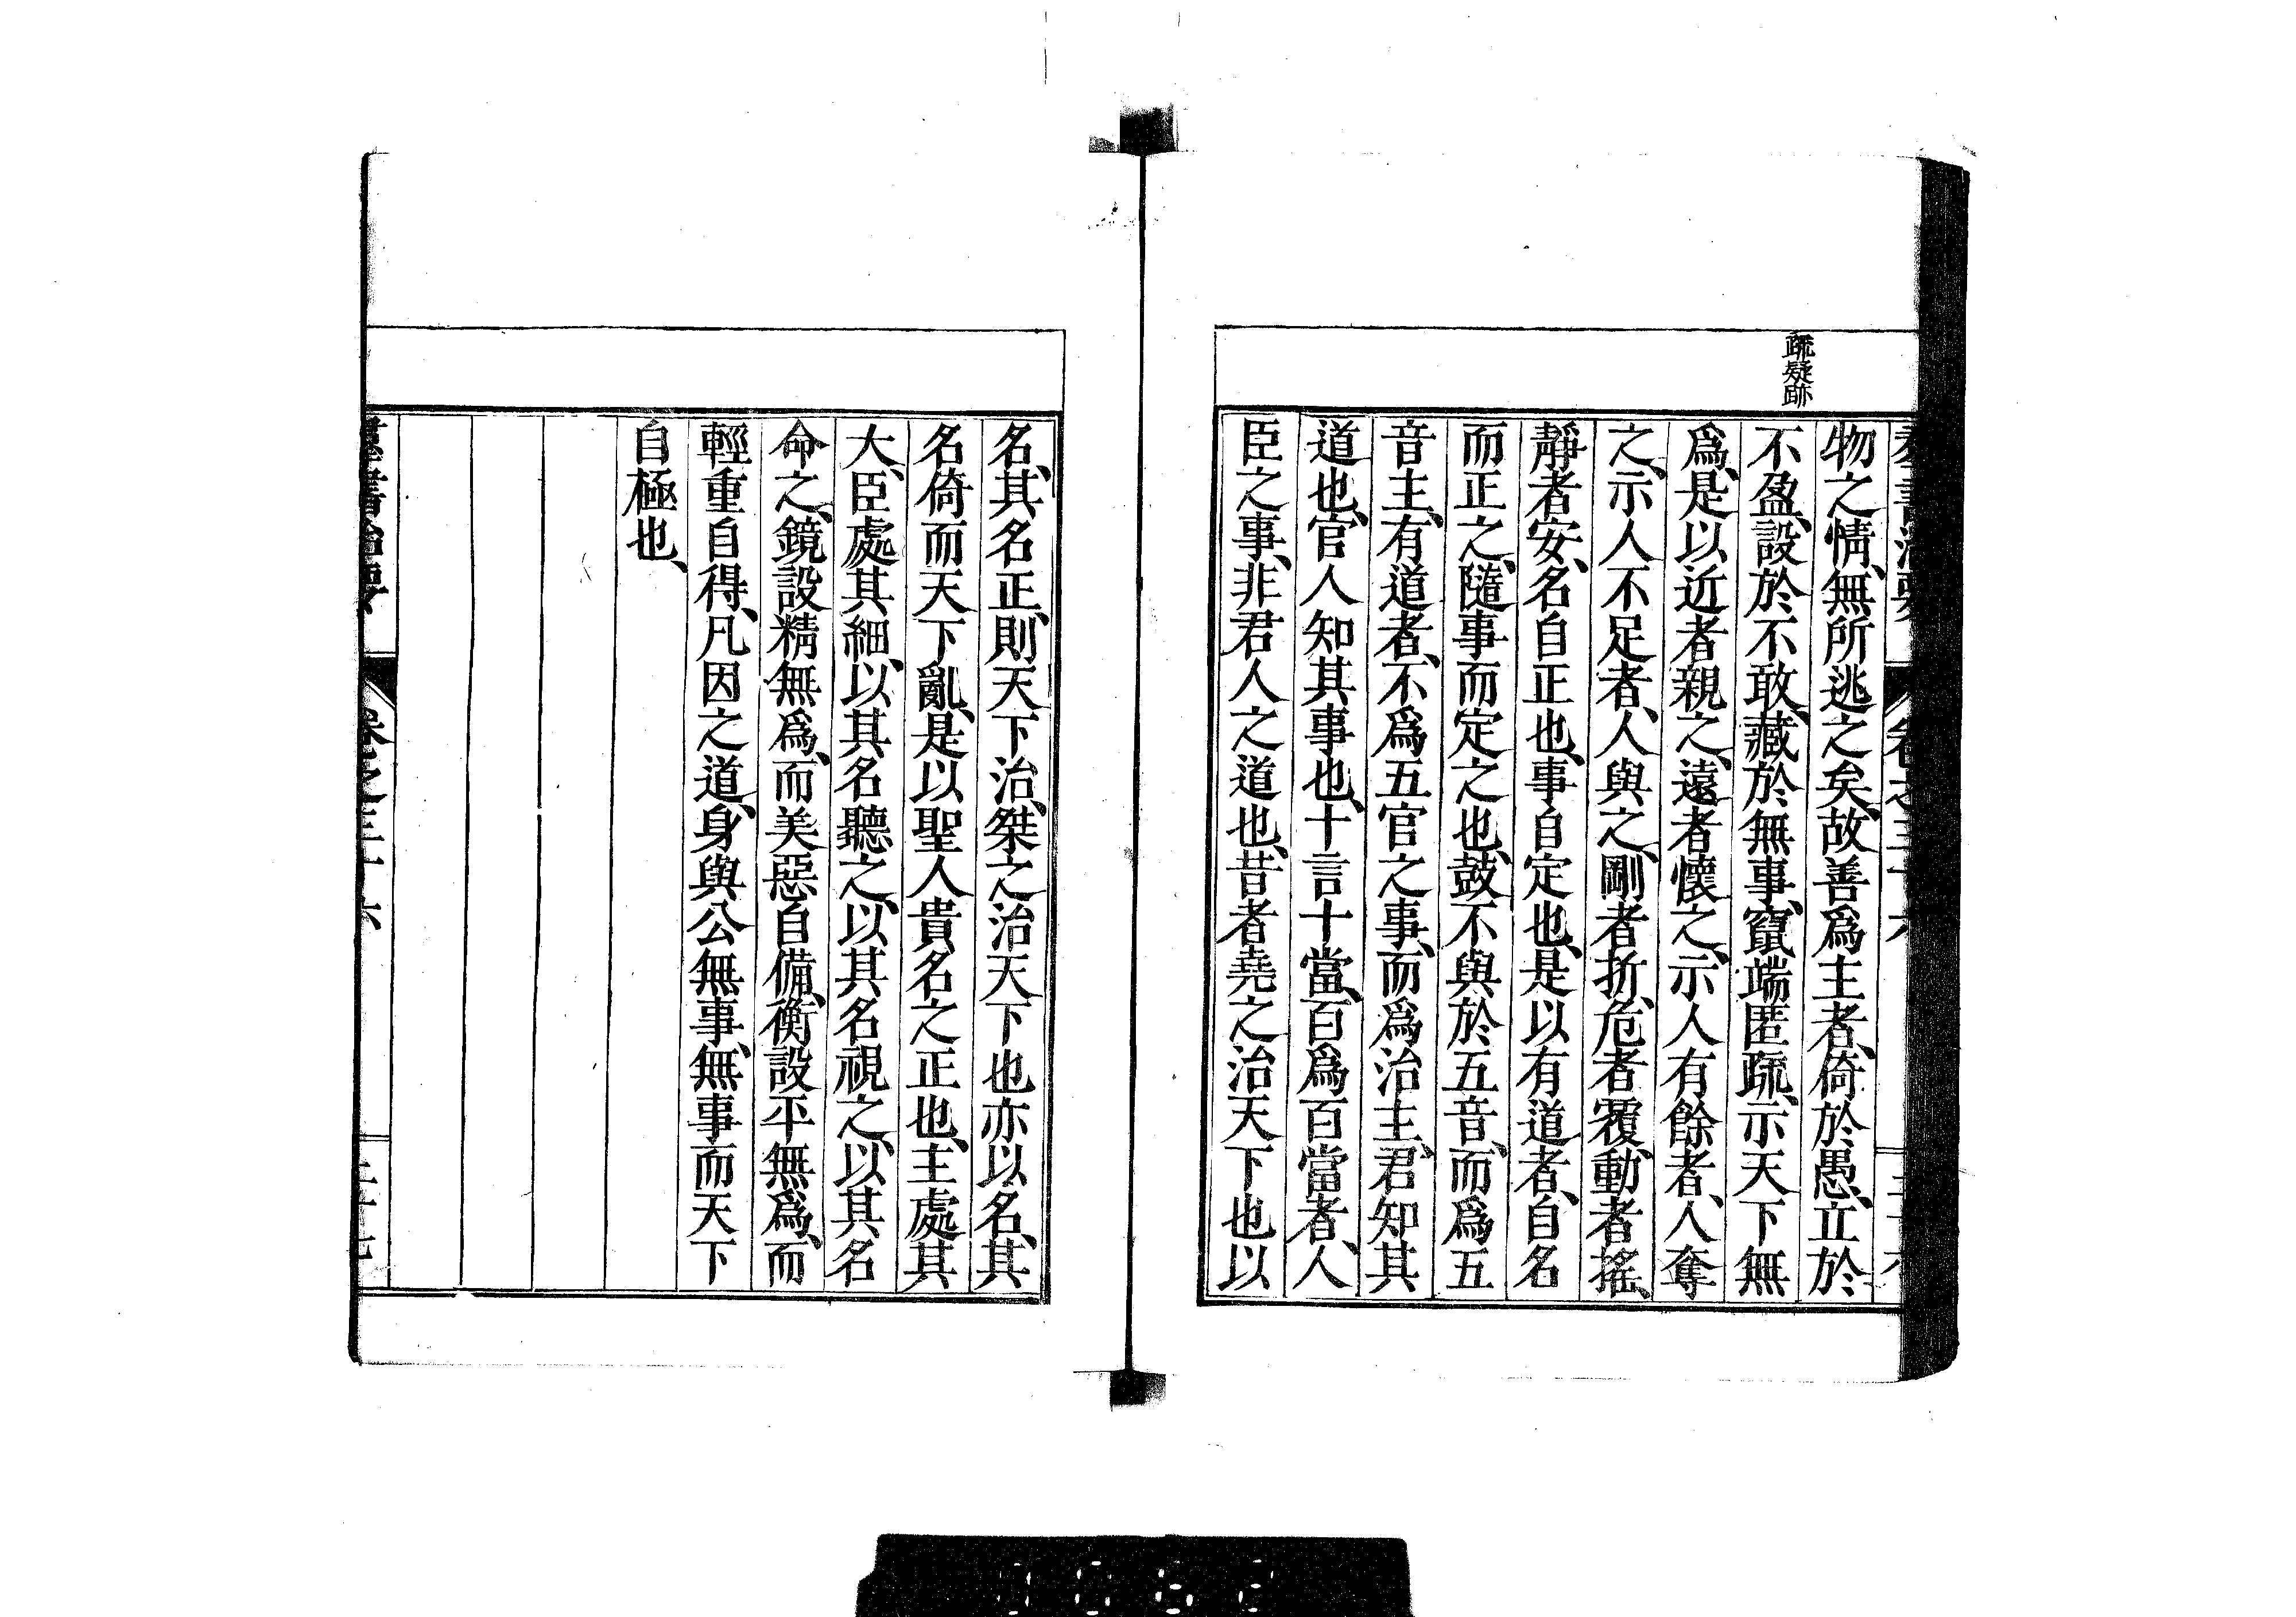 疏疑跡
物之情、無所逃之矣、故善爲主者、倚於愚、立於
不盈、設於不敢、藏於無事、竄端匿疏、示天下無
爲、是以近者親之、遠者懷之、示人有餘者、人奪
之、示人不足者、人與之、剛者折、危者覆、動者搖、
靜者安、名自正也、事自定也、是以有道者、自名
而正之、隨事而定之也、鼓不與於五音、而爲五
音主、有道者、不爲五官之事、而爲治主、君知其
道也、官人知其事也、十言十當、百爲百當者、人
臣之事、非君人之道也、昔者堯之治天下也以
名、其名正、則天下治、桀之治天下也亦以名、其
名倚而天下亂、是以聖人貴名之正也、主處其
大、臣處其細、以其名聽之、以其名視之、以其名
命之、鏡設精無爲、而美惡自備、衡設平無爲、而
輕重自得、凡因之道、身與公無事、無事而天下
自極也、
羣書治要 卷之三十六